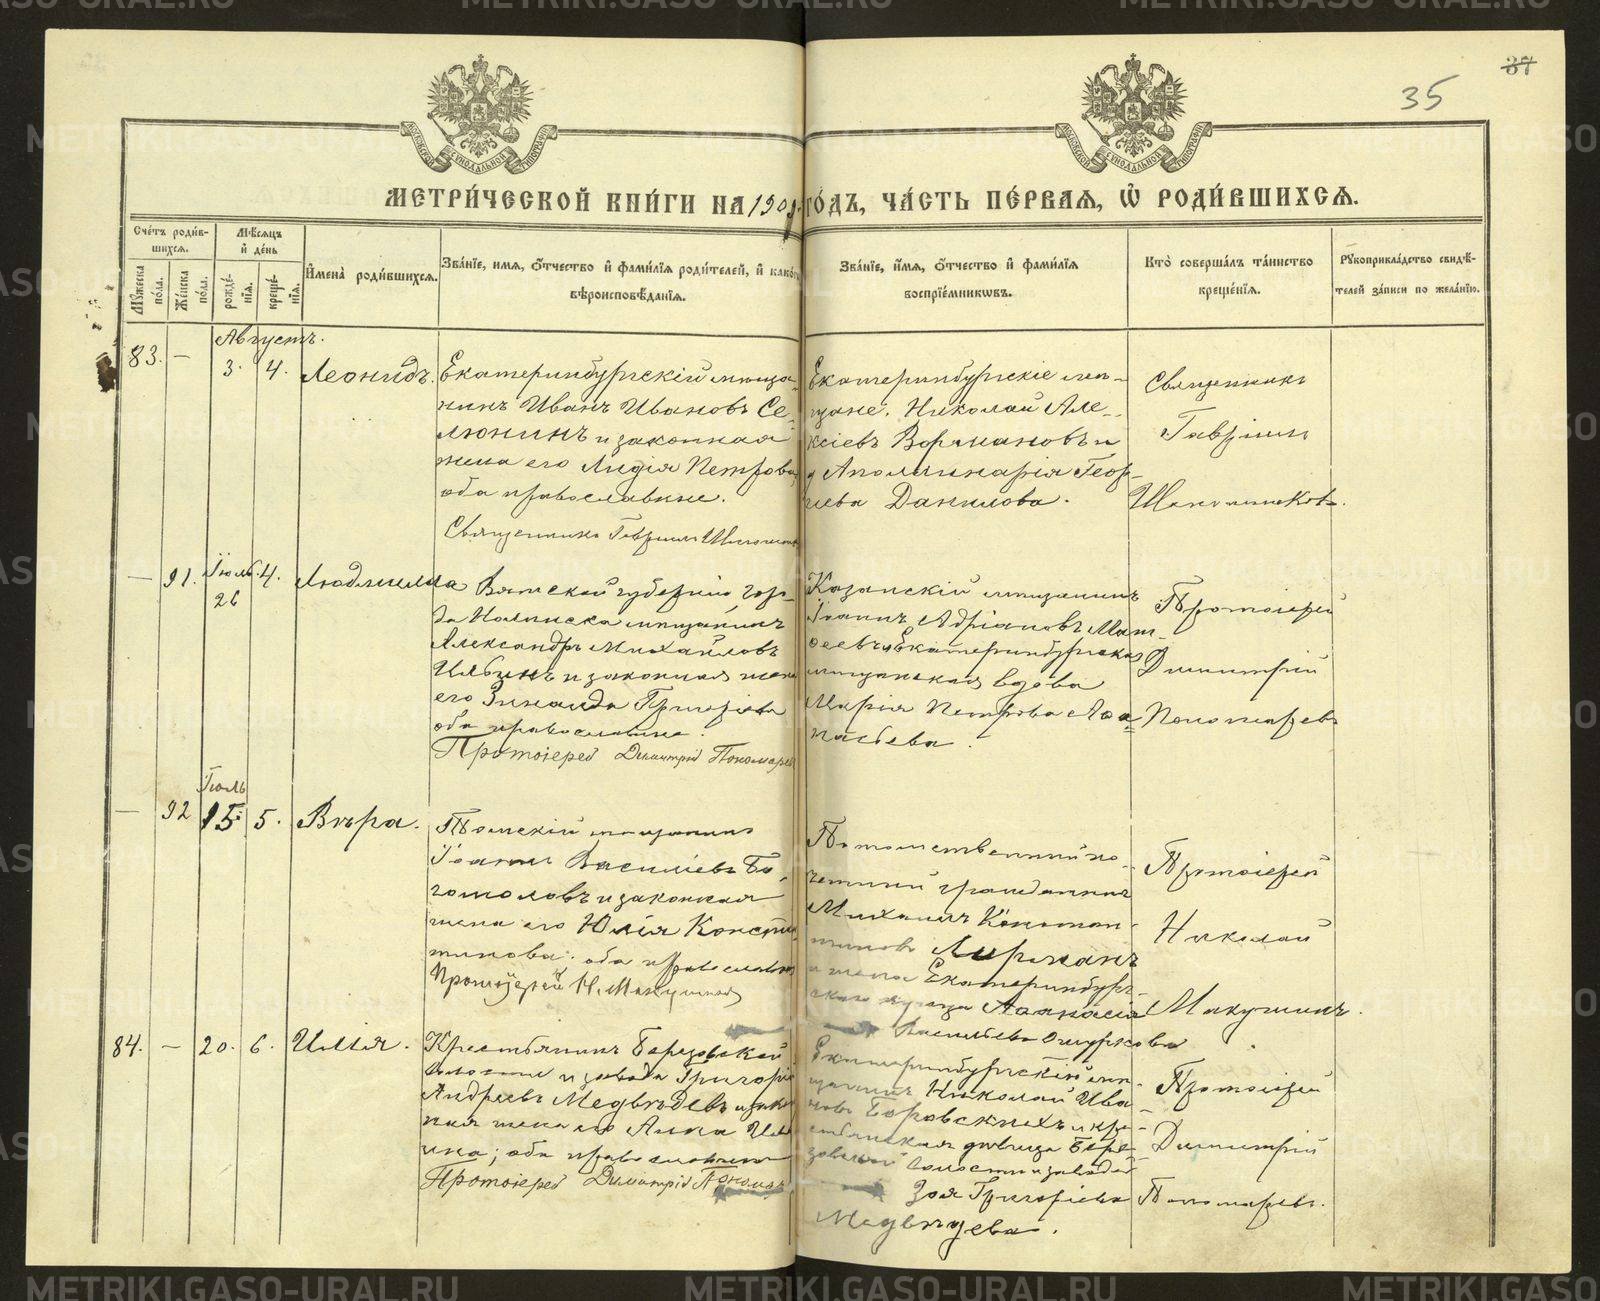 METRIKI.GASO-URAL.RU
37
35
МОСКОВСКОЙ СѴНОДАЛЬНОЙ ТИПОГРАФІИ
МОСКОВСКОЙ СѴНОДАЛЬНОЙ ТИПОГРАФІИ
МЕТРИ́ЧЕСКОЙ КНИ́ГИ НА 1909 ГО́ДЪ, ЧА́СТЬ ПЕ́РВАЯ, Ѽ РОДИ́ВШИХСЯ.
Сче́тъ роди́в-
шихся.
Мꙋ́жеска по́ла.
Же́нска по́ла.
Мѣ́сяцъ
и҆ де́нь
рожде́-
нїя.
креще́-
нїя.
И҆мена̀ роди́вшихся.
Зва́нїе, и҆́мя, ѻ҆́тчество и҆ фами́лїя роди́телей, и҆ како́гѡ
вѣроисповѣ́данїя.
Зва́нїе, и҆́мя, ѻ҆́тчество и҆ фами́лїя
воспрїе́мникѡвъ.
Кто̀ соверша́лъ та́инство
креще́нїя.
Рꙋкоприкла́дство свидѣ́-
телей за́писи по жела́нїю.
Августъ.
83. — 3. 4. Леонидъ.
Екатеринбургскій мѣща-
нинъ Иванъ Ивановъ Се-
люнинъ и законная
жена его Лидія Петрова
оба православные.
Священникъ Гавріилъ
Екатеринбургскіе мѣ-
щане: Николай Але-
ксіевъ Вормановъ и
Аполлинарія Геор-
гіева Данилова.
Священникъ
Гавріилъ
— 91. Іюль 26 4. Людмилла
Вятской губерніи горо-
да Нолинска мѣщанинъ
Александръ Михайловъ
Ильинъ и законная жена
его Зинаида Григорьева
оба православные.
Протоіерей Димитрій Пономарев
Казанскій мѣщанинъ
Іоаннъ Адріановъ Мат-
ѳеевъ и Екатеринбургская
мѣщанская вдова
Марія Петрова Аѳа-
насьева.
Протоіерей
Димитрій
Пономаревъ
— 92 Іюль 15 5. Вѣра.
Томскій мѣщанинъ
Іоаннъ Васильевъ Бо-
гомоловъ и законная
жена его Юлія Констан-
тинова: оба православные
Протоіерей Н. Макушинъ
Потомственный по-
четный гражданинъ
Михаилъ Констан-
тиновъ
и жена Екатеринбург-
скаго купца Аѳанасія
Васильева Ошуркова
Протоіерей
Николай
Макушинъ.
84. — 20. 6. Илія.
Крестьянинъ Березовской
волости и завода Григорій
Андреевъ Медвѣдевъ и закон-
ная жена его Анна Иль-
ина; оба православные
Протоіерей Димитрій Пономар
Екатеринбургскій мѣ-
щанинъ Николай Ива-
новъ Боровскихъ и кре-
стьянская дѣвица Бере-
зовской волости и завода
Зоя Григоріева
Медвѣдева.
Протоіерей
Димитрій
Пономаревъ.
METRIKI.GASO-URAL.RU